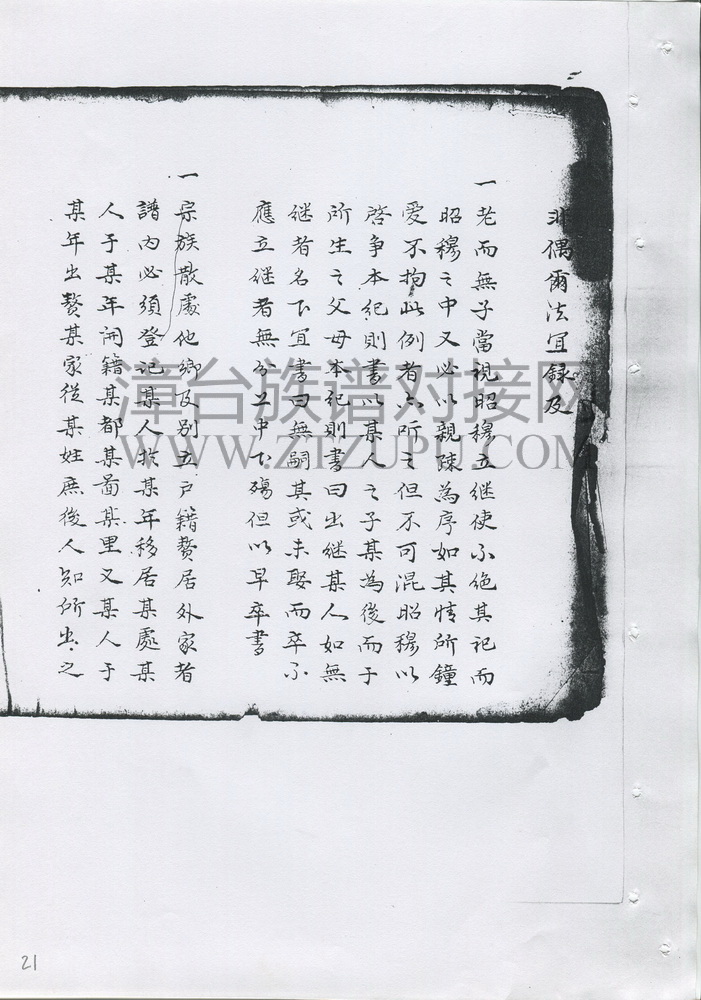 非偶爾法宜錄及
一老而無子當視昭穆立継使不絕其祀而
昭穆之中又必以親疎為序如其情所鐘
愛不拘此例者亦听之但不可混昭穆以
啓争本紀則書以某人之子某為後而于
所生之父母本紀則書曰出継某人如無
継者名下宜書曰無嗣其或未娶而卒不
應立継者無分上中下殤但以早卒書
一宗族散處他鄉及別立戶籍贅居外家者
譜內必須登記某人於某年移居某處某
人于某年開籍某都某啚某里又某人于
某年出贅某家從某姓庶後人知所出之
漳台族谱对接网
WWW.ZTZUPU.COM
21